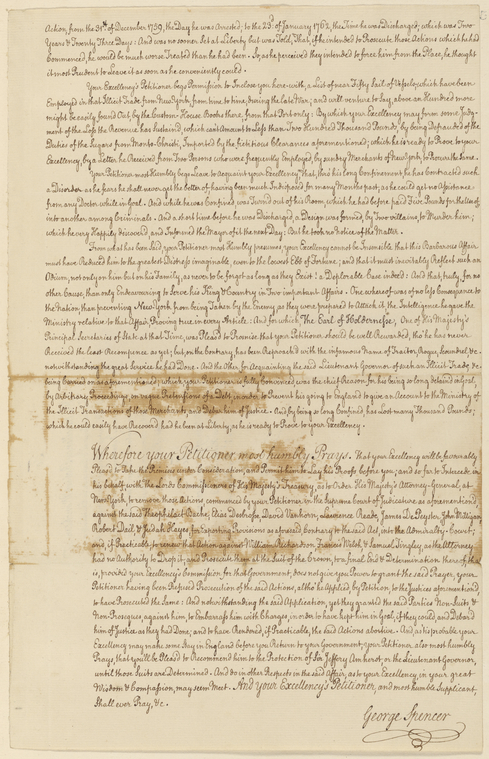 Action, from the 31st of December 1759, the Day he was Arrested, to the 23d of January 1762, the Time he was Discharged; which was Two
Years & Twenty Three Days: And was no sooner Set at Liberty but was Told, That, if he intended to Prosecute those Actions which he had
Commenced, he would be much worse Treated than he had been. So, as he perceived they intended to force him from the Place, he thought
it most Prudent to Leave it as soon as he conveniently could.
Your Excellency's Petitioner begs Permission to Inclose you here-with, a List of near Fifty Sail of Vessels, which have been
Employed in that Illicit Trade from New York, from time to time, during the late War; and will venture to Say above an Hundred more
might be easily found Out by the Custom-House Books there, from that Port only: By which your Excellency may form some Judg-
ment of the Loss the Revenue has Sustained, which can't Amount to Less than Two Hundred Thousand Pounds; by being Defrauded of the
Duties of the Sugars from Monto-Christi, Imported by the fictitious Clearances aforementioned; which he is ready to Prove to your
Excellency, by a Letter he Received from Two Persons who were frequently Employed, by sundry Merchants of New York, to Procure the same.
Your Petitioner most Humbly begs Leave to Acquaint your Excellency, That, thro' his long Confinement, he has Contracted such
a Disorder as he fears he shall never get the better of, having been much Indisposed for many Months past, as he could get no Assistance
from any Doctor while in Goal. And while he was Confined, was Turn'd out of his Room, which he had before paid Five Pounds for the Use of,
into another among Criminals. And a short time before he was Discharged, a Design was formed, by Two villains, to Murder him;
which he very Happily discovered, and Informed the Mayor of it the next Day: But he took no Notice of the Matter.
From what has been Said, your Petitioner most Humbly presumes, your Excellency cannot be Insensible that this Barbarous Affair
must have Reduced him to the greatest Distress imaginable, even to the lowest Ebb of Fortune; and that it must inevitably Reflect such an
Odium, not only on him but on his Family, as never to be forgot as long as they Exist! a Deplorable Case indeed! And that truly, for no
other Cause, than only Endeavouring to Serve his King & Country in Two important Affairs: One whereof was of no less Consequence to
the Nation than preventing New-York from being Taken by the Enemy, as they were prepared to Attack it, the Intelligence he gave the
Ministry relative to that Affair, Proving true in every Article: And for which The Earl of Holdernesse, One of His Majesty's
Principal Secretaries of State at that Time, was Pleas'd to Promise that your Petitioner should be well Rewarded, tho' he has never
Received the least Recompence as yet; but on the contrary, has been Reproached with the infamous Name of Traitor, Rogue, Scoundrel, &c.
notwithstanding the great Service he had Done. And the other for Acquainting the said Lieutenant Governor of such an Illicit Trade, &c.
being Carried on as aforementioned; which your Petitioner is fully Convinced was the chief Reason for his being so long detained in Goal,
by Arbitrary Proceedings, on vague Pretensions of a Debt, in order to Prevent his going to England to give an Account to the Ministry of
the Illicit Transactions of those Merchants, and Debar him of Justice. And by being so long Confined, has Lost many Thousand Pounds;
which he could easily have Recovered had he been at Liberty, as he is ready to Prove to your Excellency.
Wherefore your Petitioner, most humbly Prays, That your Excellency will be favourably
Pleas'd to Take the Premises under Consideration, and Permit him to Lay his Proofs before you; and so far to Intercede in
his behalf with the Lords Commissioners of His Majesty's Treasury, as to Order His Majesty's Attorney-General, at
New York, to remove those Actions, commenced by your Petitioner in the Supreme Court of Judicature as aforementioned,
against the said Theophilact Bache, Elias Desbrosses, David Vanhorn, Lawrence Reade, James De Peyster, John Milligan,
Robert Dail, & Judah Hayes for Exporting Provisions as aforesaid contrary to the said Act, into the Admiralty-Court;
and, if Practicable, to renew that Action against William Richardson, Francis Welsh, & Samuel Tingley, as the Attorney
had no Authority to Drop it; and Prosecute them at the Suit of the Crown, to a final End & Determination thereof; that
is, provided your Excellency's Commission for that Government, does not give you Power to grant the said Prayer, your
Petitioner having been Refused Prosecution of the said Actions, altho' he applied, by Petition, to the Justices aforementioned,
to have Prosecuted the Same: And notwithstanding the said Application, yet they granted the said Parties Non-Suits &
Non-Prosses against him, to Embarrass him with Charges, in order to have kept him in Goal, if they could, and Debar'd
him of Justice as they had Done; and to have Rendered, if Practicable, the said Actions abortive. And, as its probable your
Excellency may make some Stay in England before you Return to your Government, your Petitioner, also most humbly
Prays, that you'll be Pleas'd to Recommend him to the Protection of Sir Jeffery Amherst or the Lieutenant Governor,
until those Suits are Determined. And do in other Respects in the said Affair, as to your Excellency in your great
Wisdom & Compassion, may seem Meet. And Your Excellency's Petitioner, and most humble Supplicant,
Shall ever Pray, &c.
George Spencer